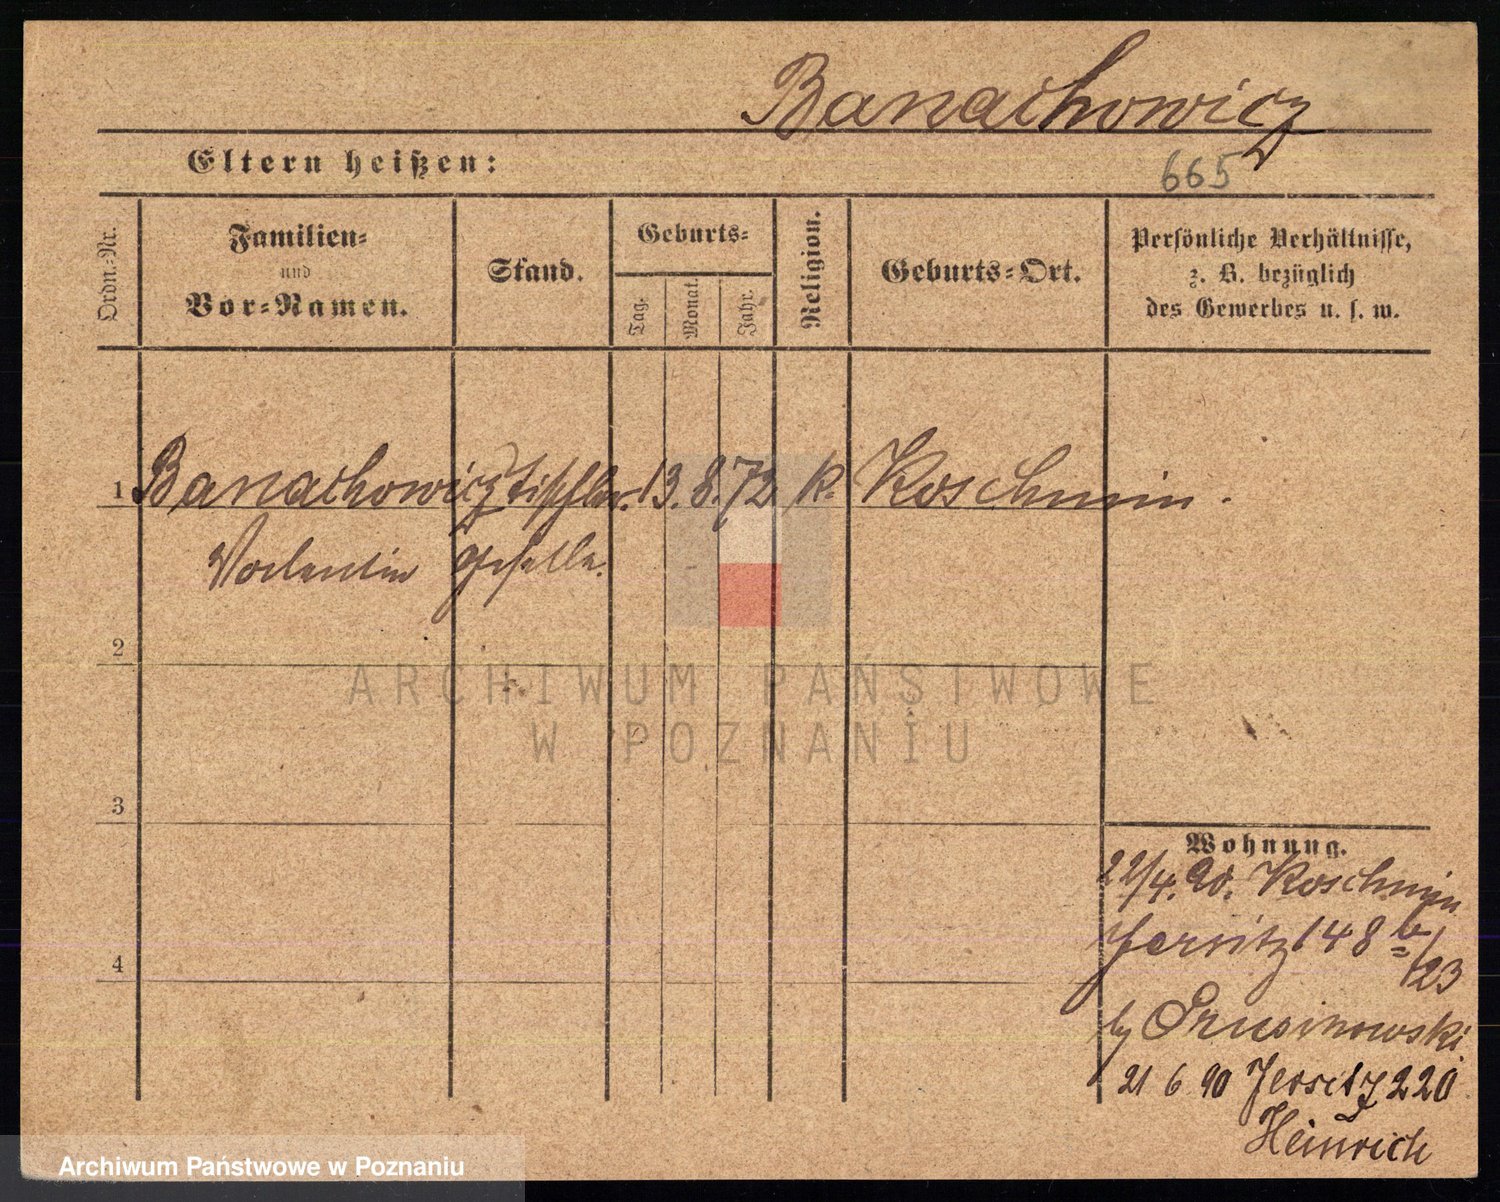 Banachowicz
Eltern heißen:
665
Ordn.-Nr.
Familien-
und
Vor-Namen.
Stand.
Geburts-
Tag.
Monat.
Jahr.
Religion.
Geburts-Ort.
Persönliche Verhältnisse,
z. B. bezüglich
des Gewerbes u. s. w.
1 Banachowicz Tischler 13. 8. 72 k. Koschmin.
Valentin geselle.
2
ARCHIWUM PAŃSTWOWE
W POZNANIU
3
Wohnung.
22/4. 90. Koschmin
Jersitz 148 b/23
by Prusinowski
21 6 90 Jersitz 220
Heinrich
4
Archiwum Państwowe w Poznaniu